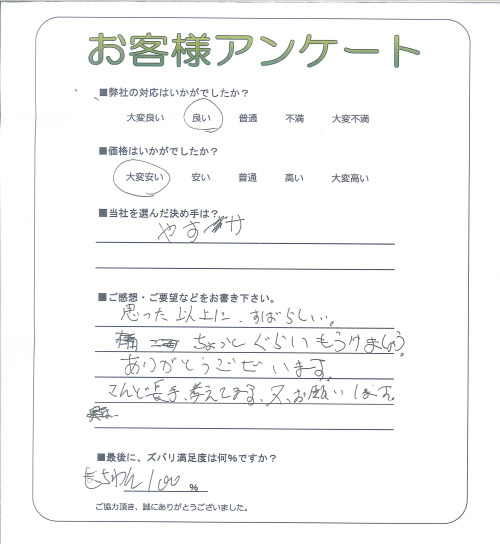 お客様アンケート
■弊社の対応はいかがでしたか？
大変良い 良い 普通 不満 大変不満
■価格はいかがでしたか？
大変安い 安い 普通 高い 大変高い
■当社を選んだ決め手は？
やす
■ご感想・ご要望などをお書き下さい。
思った以上に、すばらしい。
ちょっとぐらいもうけましょう。
ありがとうございます。
こんど長手、考えてます、又、お願いします。
■最後に、ズバリ満足度は何％ですか？
もちろん100 %
ご協力頂き、誠にありがとうございました。